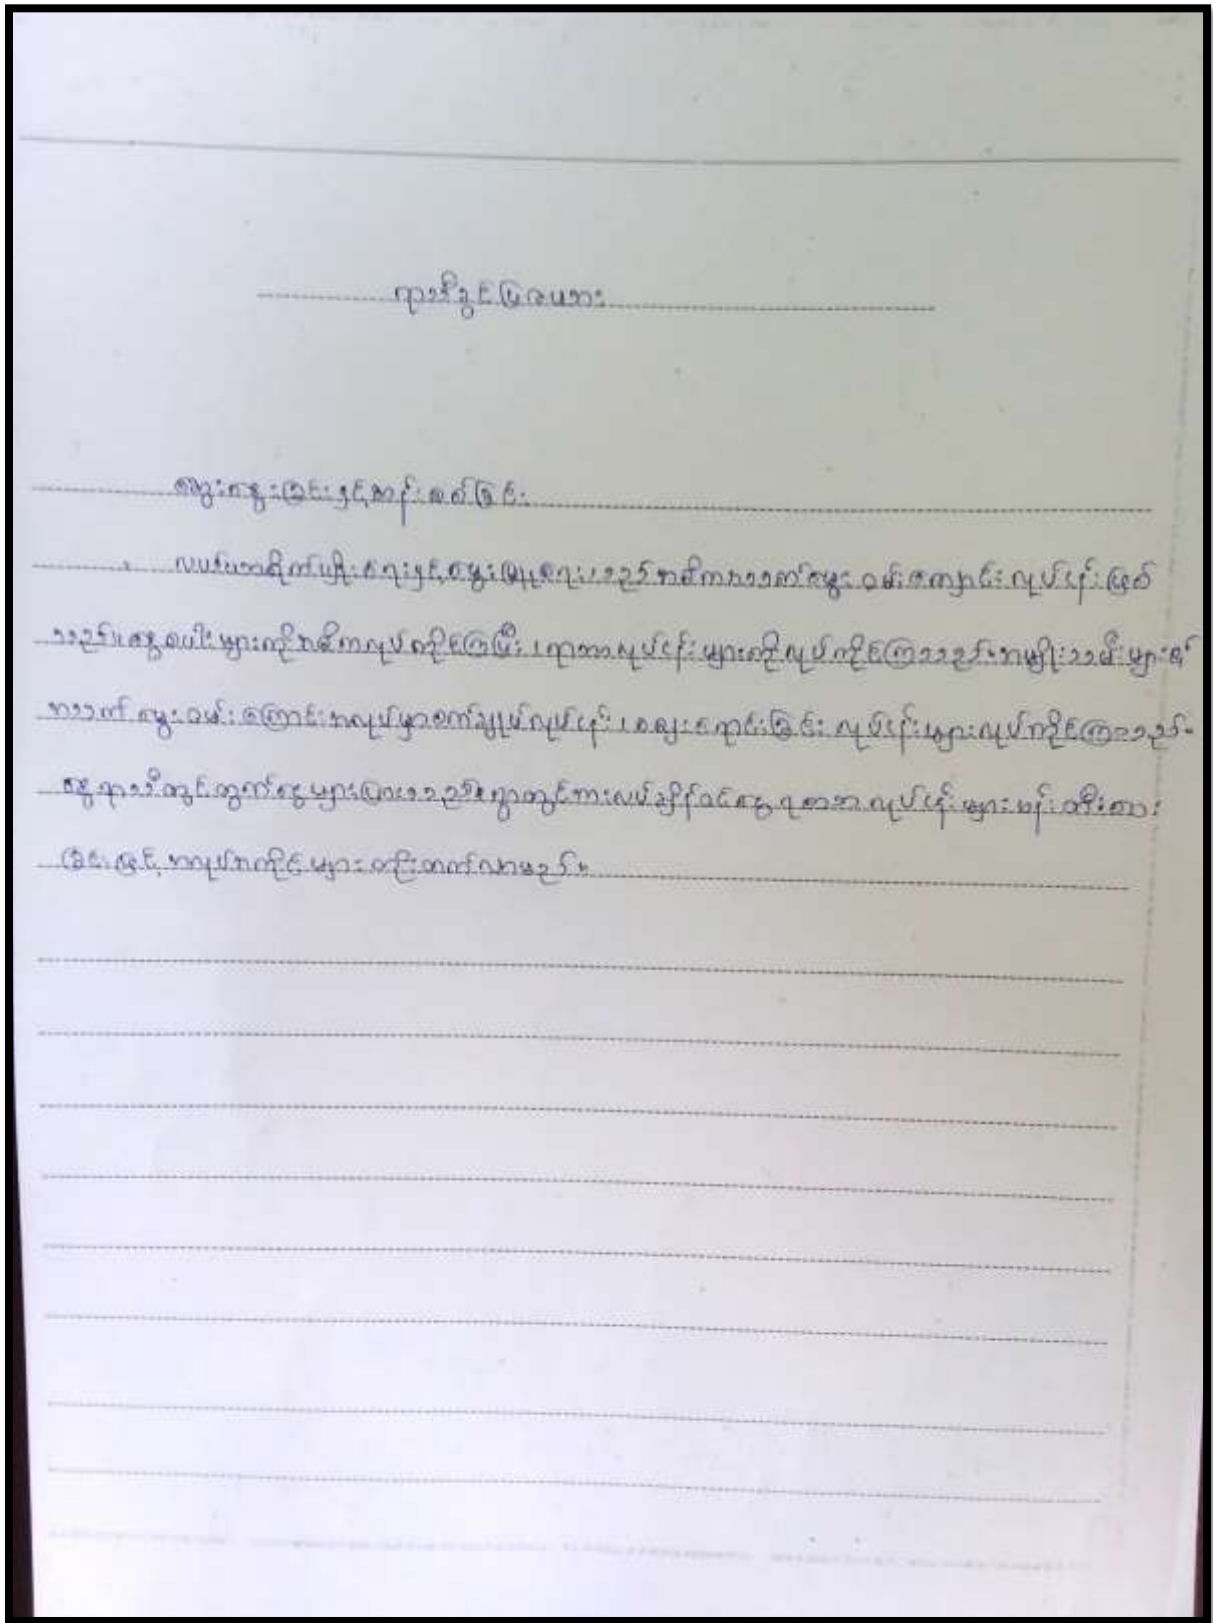 ရာသီခွင်ပြဇယား
ဆွေးနွေးခြင်းနှင့်ဆန်းစစ်ခြင်း
လယ်ယာစိုက်ပျိုးရေးနှင့်မွေးမြူရေးသည်အဓိကအသက်မွေးဝမ်းကျောင်းလုပ်ငန်းဖြစ်
သည်။နွေစပါးများကိုအဓိကလုပ်ကိုင်ကြပြီး၊ရာသာလုပ်ငန်းများကိုလုပ်ကိုင်ကြသည်။အမျိုးသမီးများ၏
အသက်မွေးဝမ်းကြောင်းအလုပ်မှာစက်ချုပ်လုပ်ငန်း၊ဈေးရောင်းခြင်းလုပ်ငန်းများလုပ်ကိုင်ကြသည်။
နွေရာသီတွင်ထွက်ငွေများပြားသည်။ရွာတွင်ကားလပ်ချိန်ဝင်ငွေရစာသာလုပ်ငန်းများဖန်တီးထား
ခြင်းဖြင့်အလုပ်အကိုင်များတိုးတက်လာမည်။